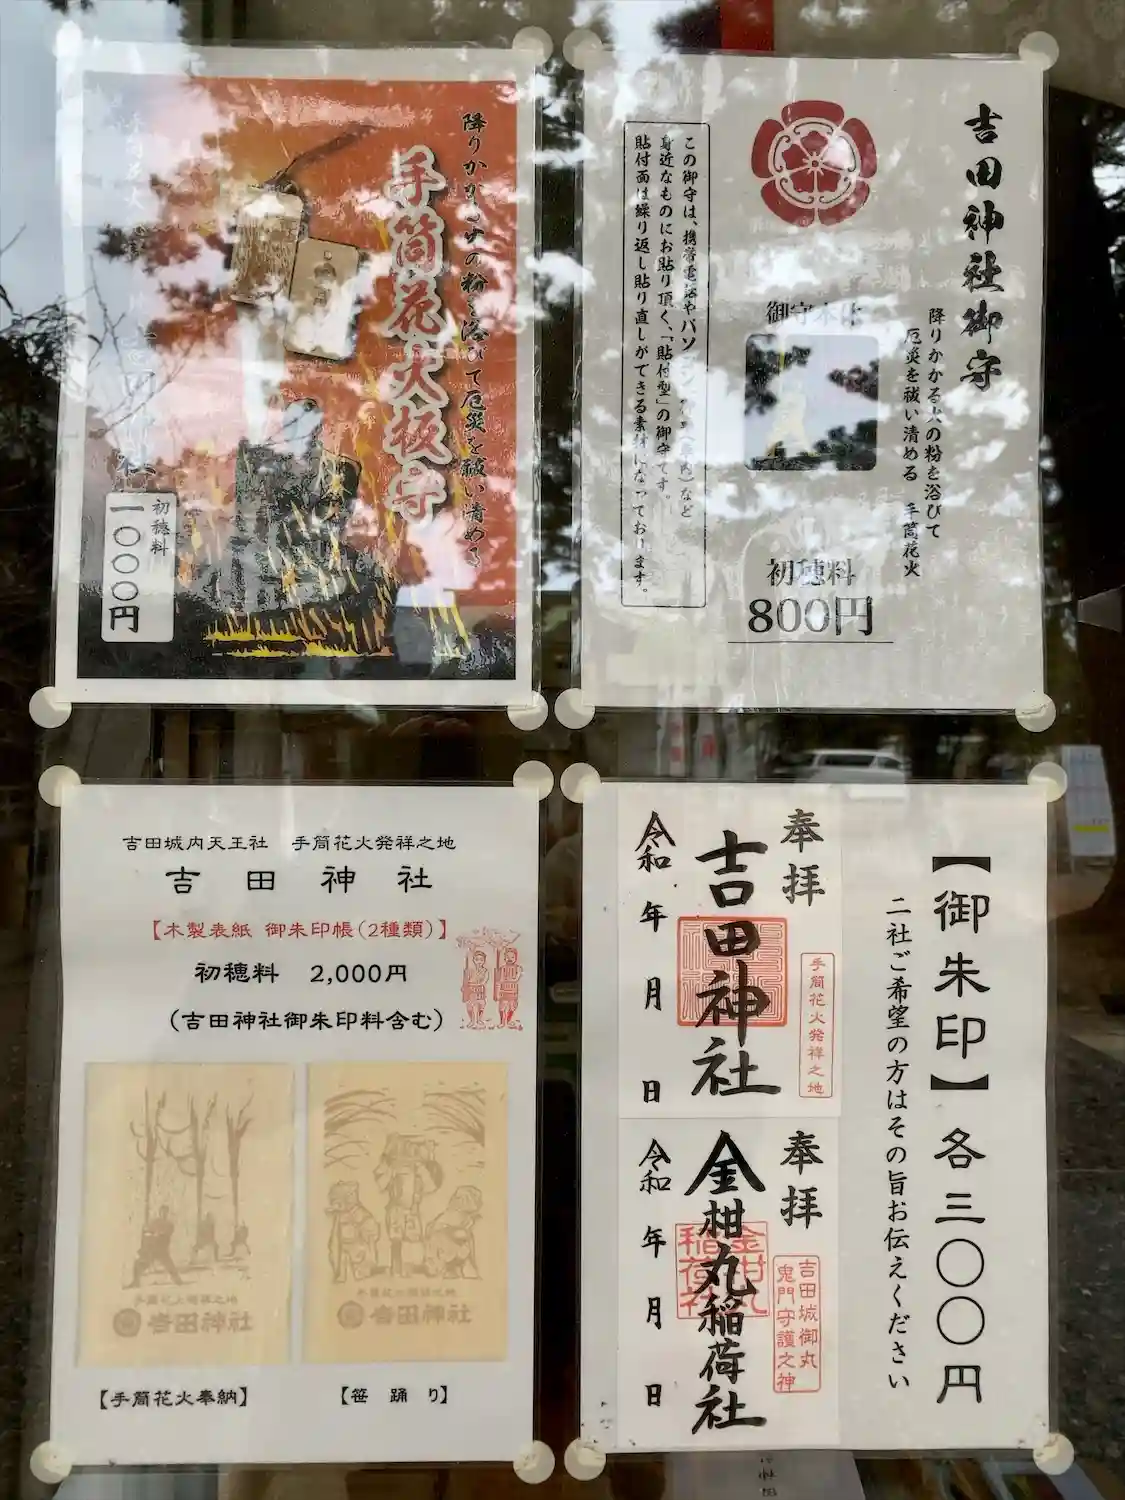 降りかかる火の粉を浴びて厄災を祓い清める
手筒花火板守
初穂料
一〇〇〇円
吉田神社御守
降りかかる火の粉を浴びて
厄災を祓い清める 手筒花火
御守本体
初穂料
800円
この御守は、携帯電話やパソコン、
身近なものにお貼り頂く、「貼付型」の御守です。
貼付面は繰り返し貼り直しができる素材になっております。
吉田城内天王社 手筒花火発祥之地
吉田神社
【木製表紙 御朱印帳(2種類)】
初穂料 2,000円
(吉田神社御朱印料含む)
手筒花火発祥之地
吉田神社
手筒花火発祥之地
吉田神社
【手筒花火奉納】
【笹踊り】
【御朱印】各三〇〇円
二社ご希望の方はその旨お伝えください
奉拝
手筒花火発祥之地
吉田神社
令和 年 月 日
奉拝
吉田城御丸
鬼門守護之神
金柑丸稲荷社
金柑丸
稲荷社
令和 年 月 日